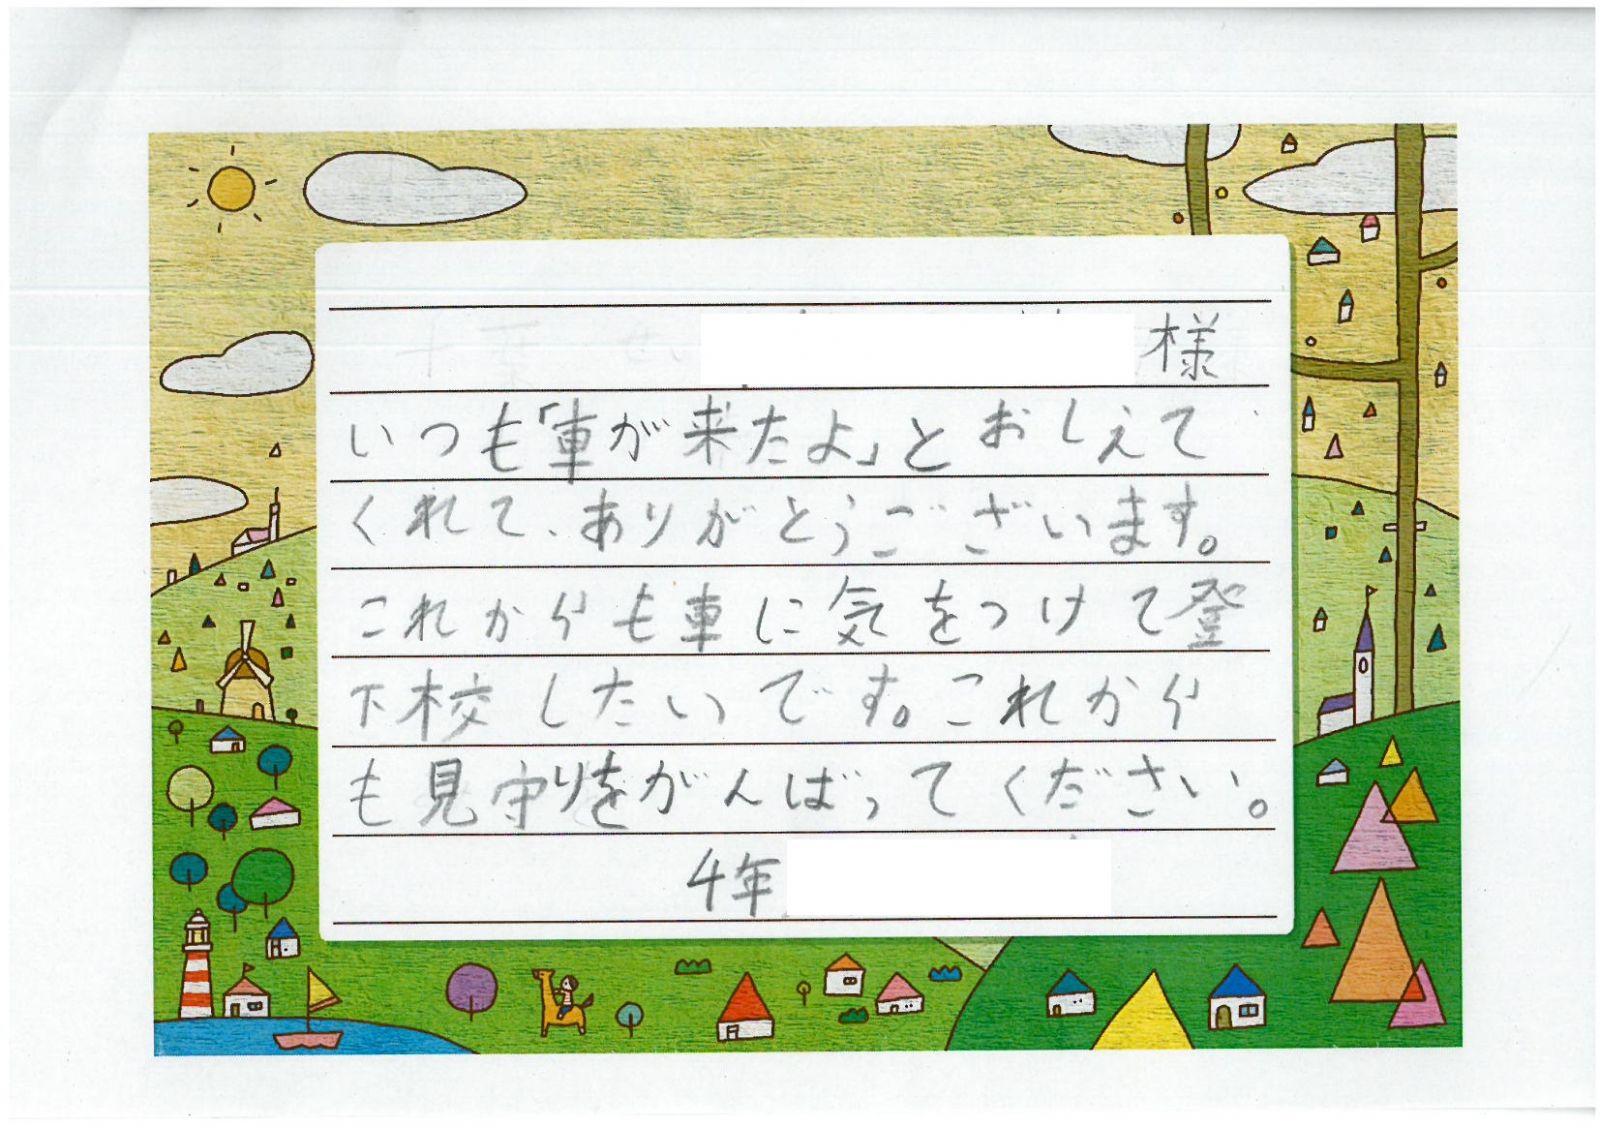 様
いつも「車が来たよ」とおしえて
くれて、ありがとうございます。
これからも車に気をつけて登
下校したいです。これから
も見守りをがんばってください。
4年